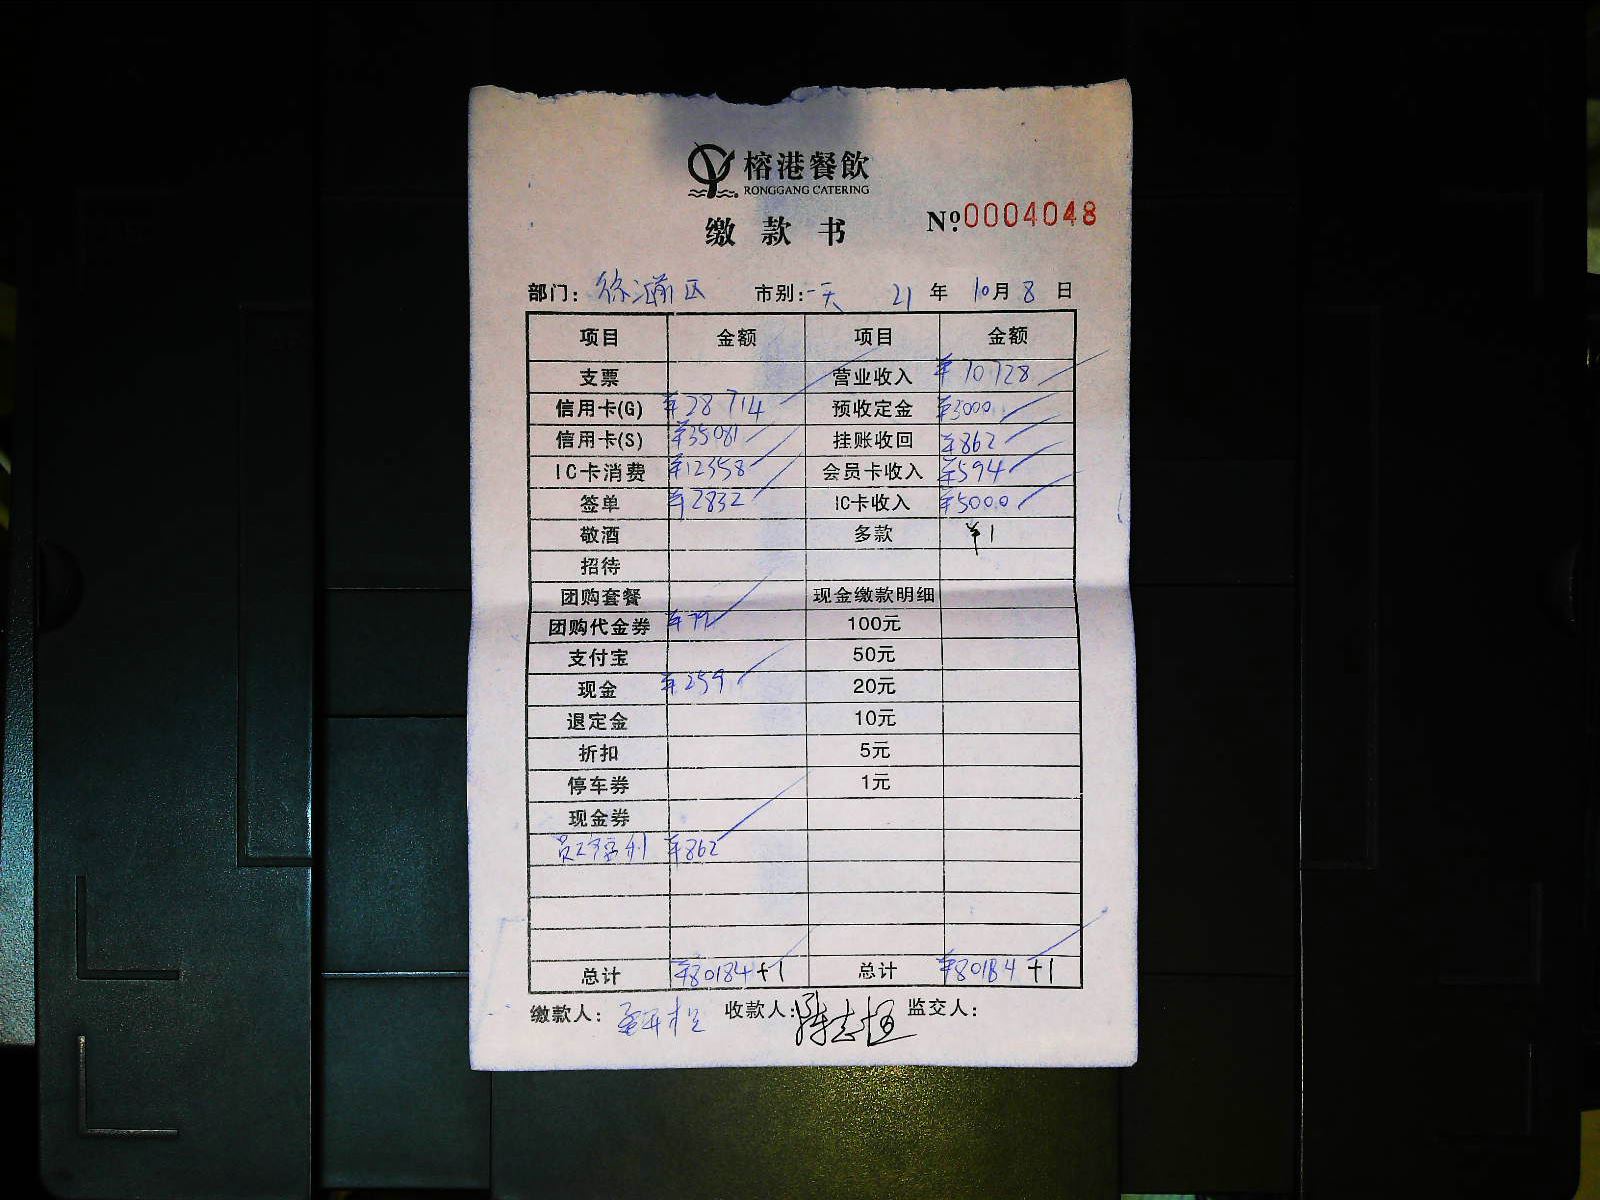 榕港餐飲
RONGGANG CATERING
缴款书 №0004048
部门: 市别:一天 21年 10月 8日
项目 金额 项目 金额
支票 营业收入 ¥70728
信用卡(G) ¥28714 预收定金 ¥3000
信用卡(S) ¥35081 挂账收回 ¥862
IC卡消费 ¥12358 会员卡收入 ¥594
签单 ¥2832 IC卡收入 ¥5000
敬酒 多款 ¥1
招待
团购套餐 现金缴款明细
团购代金券 ¥78 100元
支付宝 50元
现金 ¥259 20元
退定金 10元
折扣 5元
停车券 1元
现金券
员工福利 ¥862
总计 ¥80184+1 总计 ¥80184+1
缴款人: 收款人: 监交人: